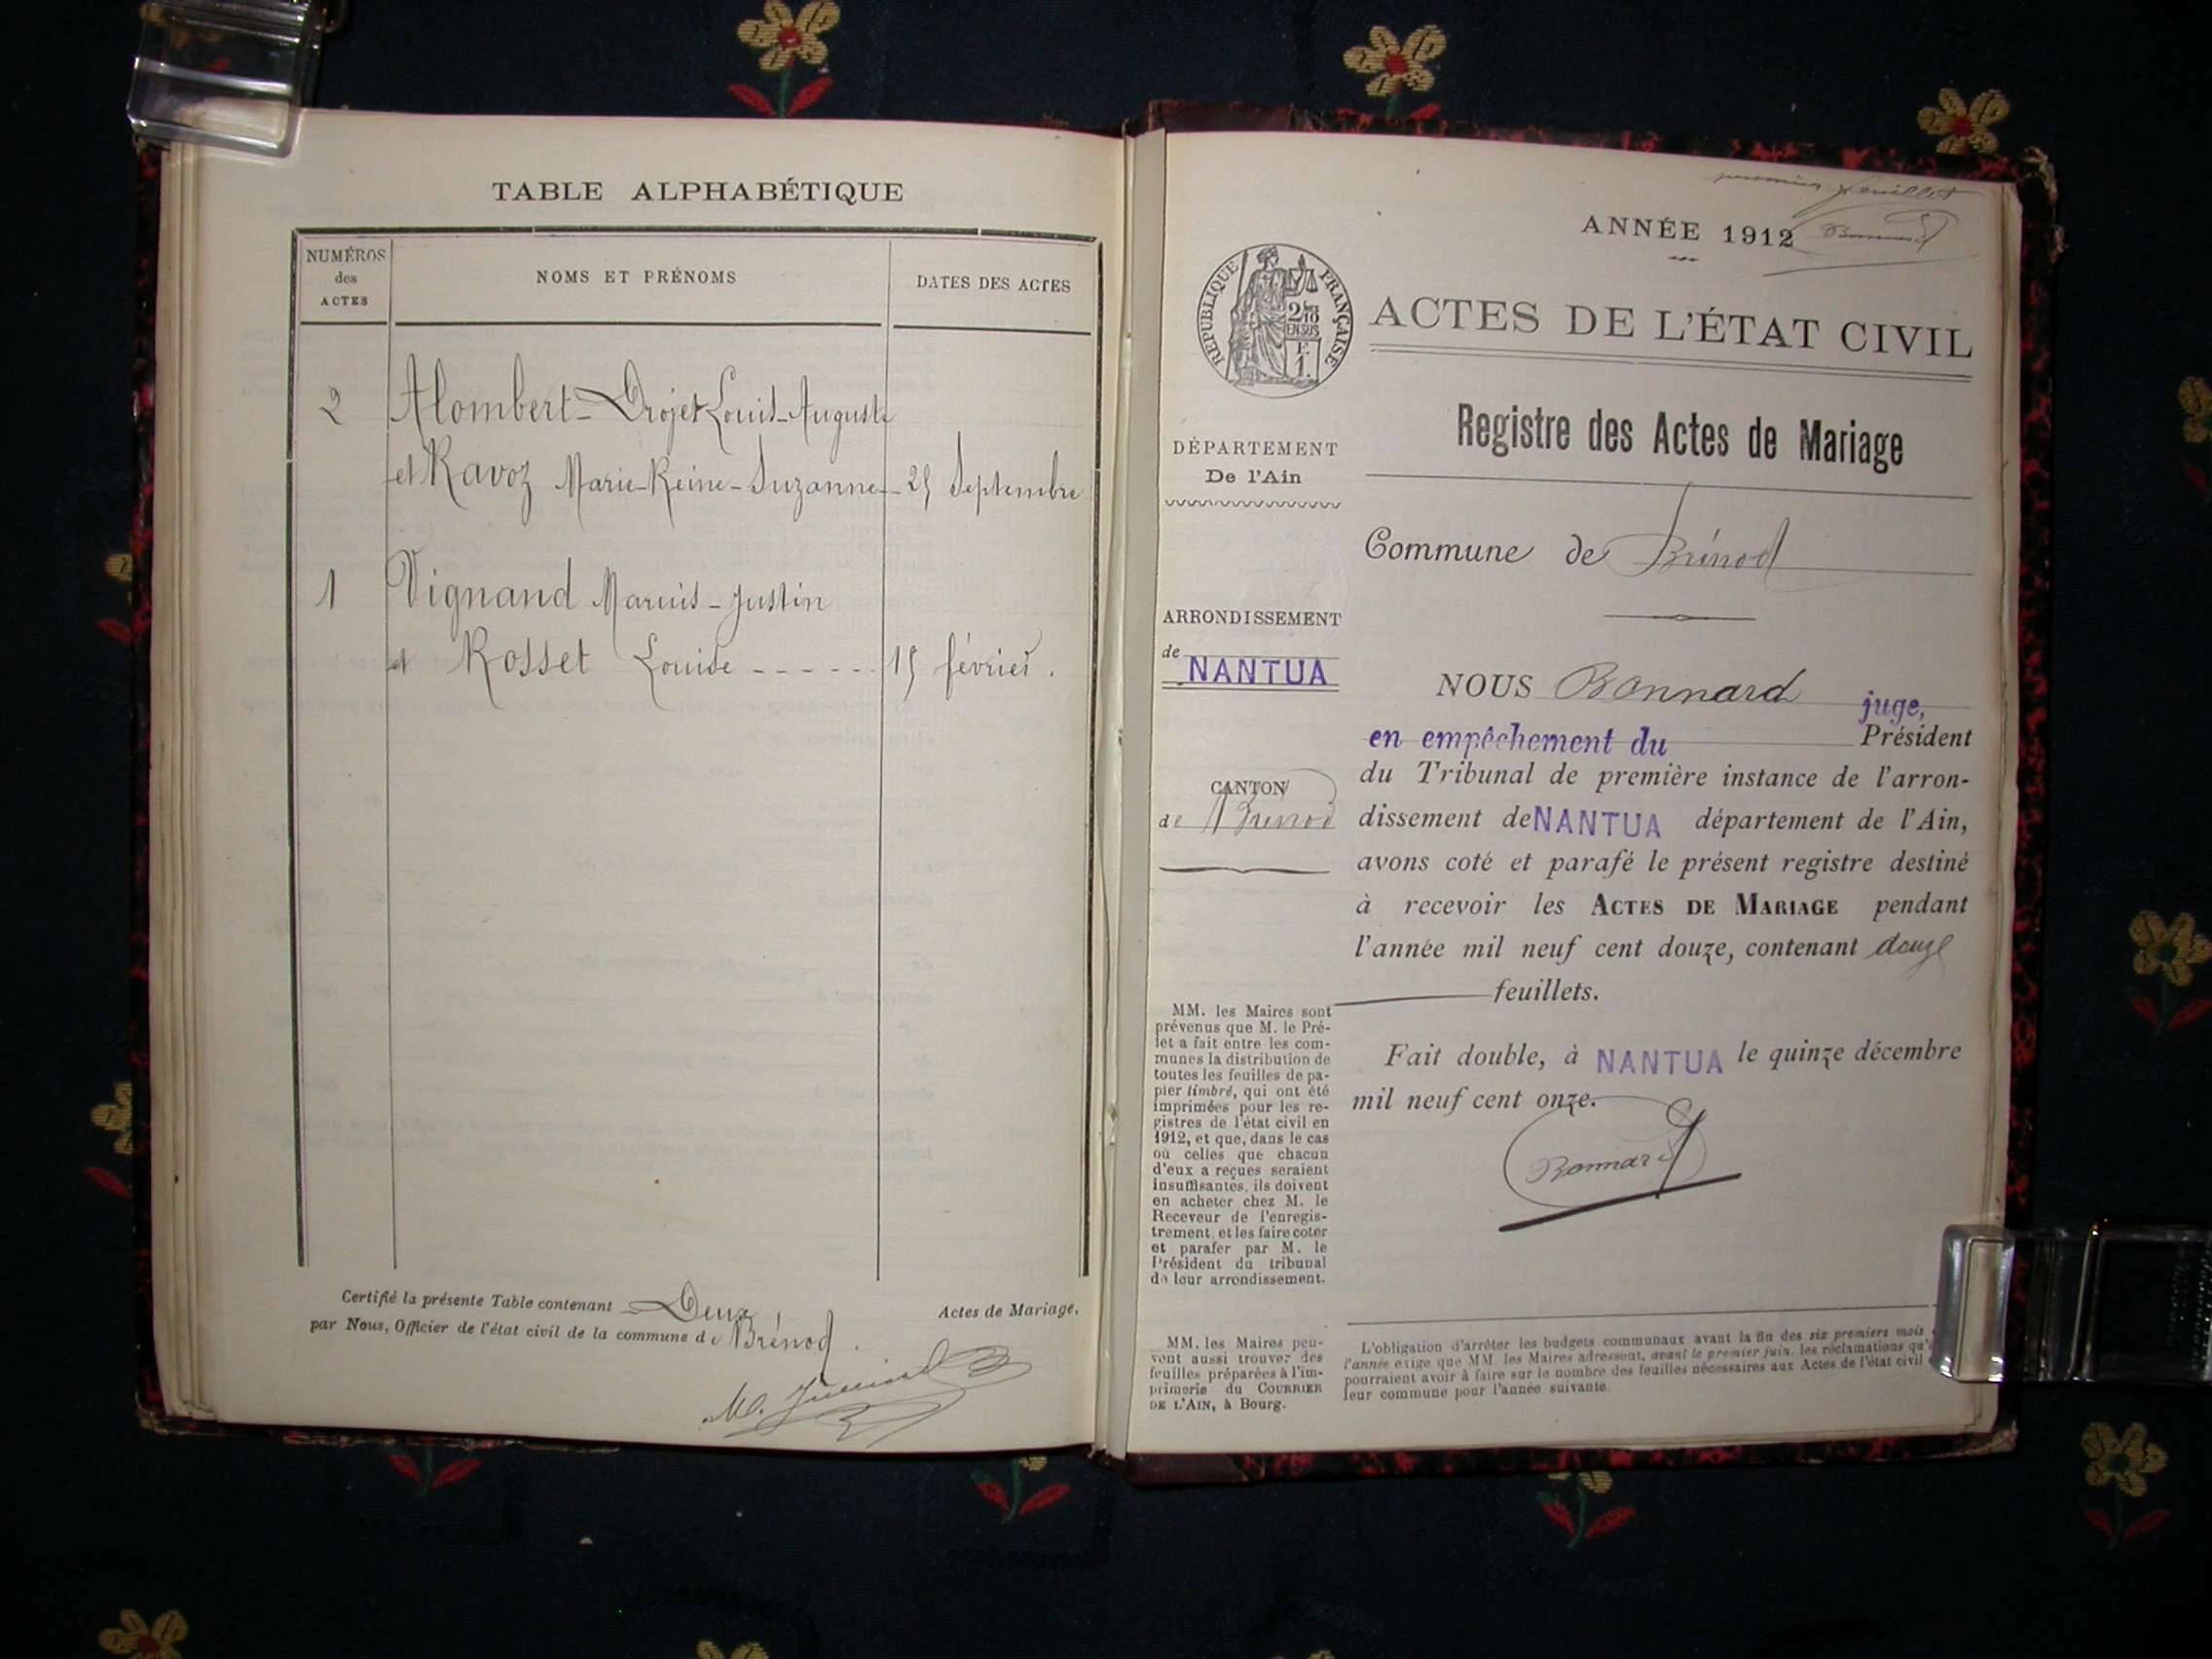 TABLE ALPHABÉTIQUE
NUMÉROS des ACTES
NOMS ET PRÉNOMS
DATES DES ACTES
2 Alombert-Drojet Louis-Auguste
et Ravoz Marie-Reine-Suzanne - 25 Septembre
1 Vignand Marius-Justin
et Rosset Louise - - - - - - 15 février.
Certifié la présente Table contenant Deux Actes de Mariage,
par Nous, Officier de l'état civil de la commune de Brénod.
premier feuillet
ANNÉE 1912
Bonnard
RÉPUBLIQUE FRANÇAISE
EN SUS
F.
1.
ACTES DE L'ÉTAT CIVIL
Registre des Actes de Mariage
DÉPARTEMENT
De l'Ain
Commune de Brénod
ARRONDISSEMENT
de NANTUA
CANTON
de Brénod
NOUS Bonnard juge,
en empêchement du Président
du Tribunal de première instance de l'arron-
dissement de NANTUA département de l'Ain,
avons coté et parafé le présent registre destiné
à recevoir les ACTES DE MARIAGE pendant
l'année mil neuf cent douze, contenant douze
feuillets.
Fait double, à NANTUA le quinze décembre
mil neuf cent onze.
Bonnard
MM. les Maires sont
prévenus que M. le Pré-
fet a fait entre les com-
munes la distribution de
toutes les feuilles de pa-
pier timbré, qui ont été
imprimées pour les re-
gistres de l'état civil en
1912, et que, dans le cas
où celles que chacun
d'eux a reçues seraient
insuffisantes, ils doivent
en acheter chez M. le
Receveur de l'enregis-
trement, et les faire coter
et parafer par M. le
Président du tribunal
de leur arrondissement.
MM. les Maires peu-
vent aussi trouver des
feuilles préparées à l'im-
primerie du COURRIER
DE L'AIN, à Bourg.
L'obligation d'arrêter les budgets communaux avant la fin des six premiers mois
l'année exige que MM. les Maires adressent, avant le premier juin, les réclamations qu'
pourraient avoir à faire sur le nombre des feuilles nécessaires aux Actes de l'état civil
leur commune pour l'année suivante.